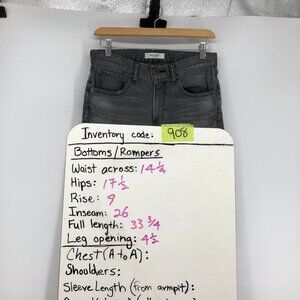 Inventory code: 908
Bottoms/Rompers
Waist across: 14 1/4
Hips: 17 1/2
Rise: 9
Inseam: 26
Full length: 33 3/4
Leg opening: 4 1/2
Chest (A to A):
Shoulders:
Sleeve Length (from armpit):